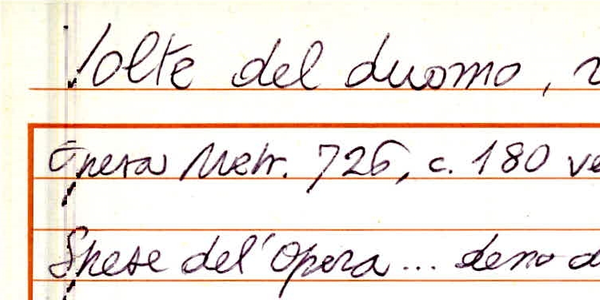 Volte del duomo,
Opera Metr. 726, c. 180 ve
Spese del'Opera... deno d